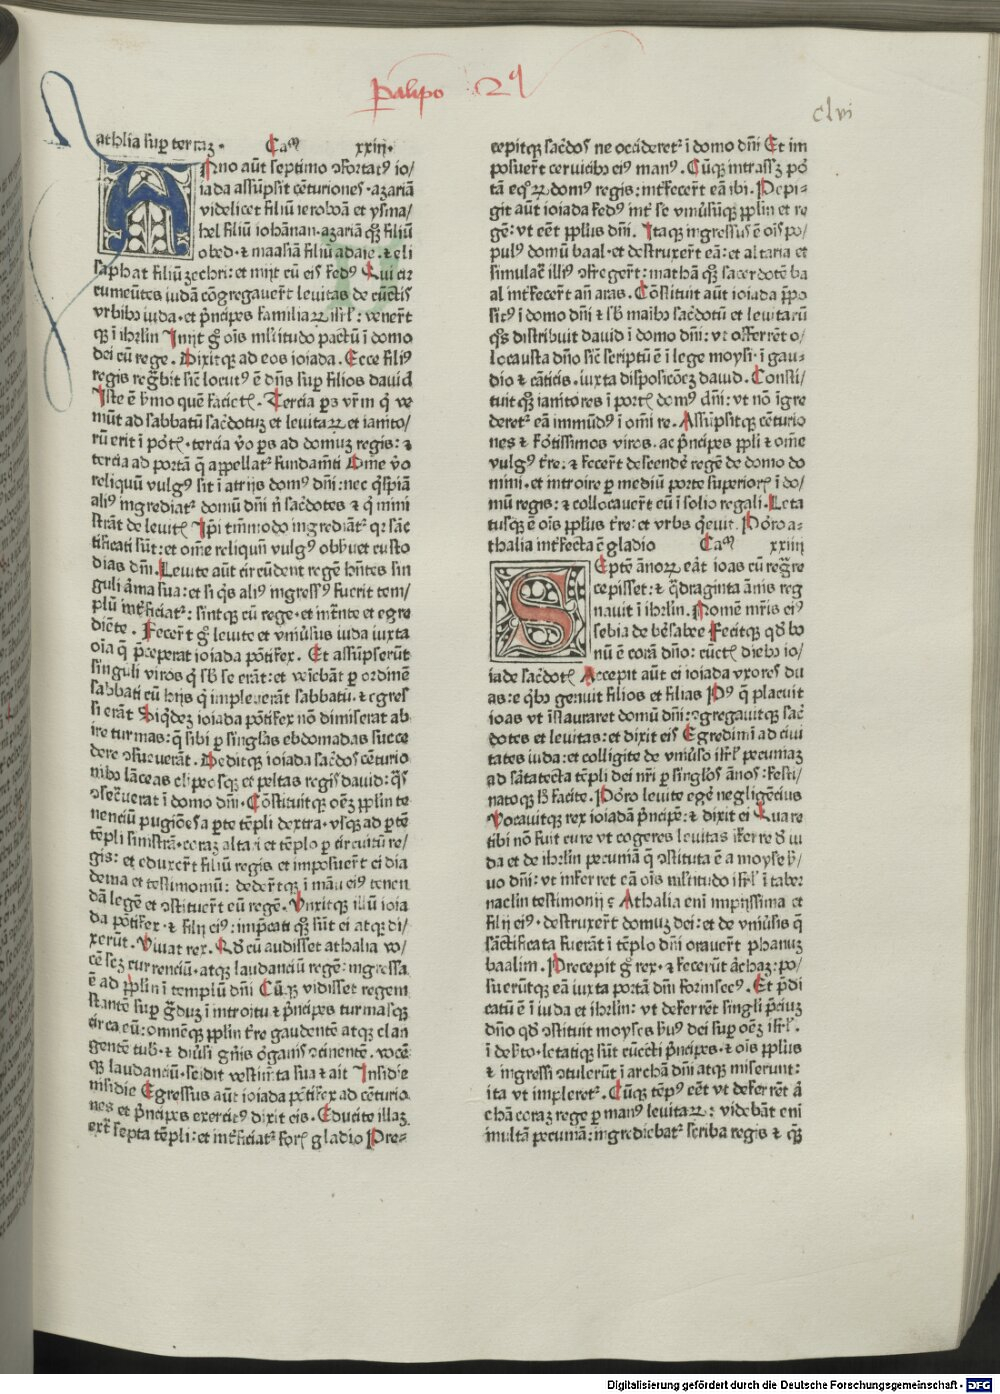 Palipo 2ꝰ
clvi
athlia sup terraz. Caᵐ xxiij.
Anno aūt septimo ↄfortatꝰ io/
iada assūpsit cēturiones. azariā
videlicet filiū ieroboā et ysma/
hel filiū iohānan. azariā qꝫ filiū
obed. ⁊ maasiā filiū adaie. ⁊ eli
saphat filiū zechri: et inijt cū eis fedꝰ Qui cir
cumeūtes iudā cōgregauert leuitas de cūctis
vrbibꝰ iuda. et p̄ncipes familiaꝝ isrl: venert
qꝫ i ihrlin Inijt gͦ oīs mltitudo pactū i domo
dei cū rege. Dixitqꝫ ad eos ioiada. Ecce filiꝰ
regis regnabit sic̄ locutꝰ ē dn̄s sup filios dauid
Iste ē ẜmo quē facietꝭ. Tercia ps vr̄m q̄ ve
niūt ad sabbatū sac̄dotuꝫ et leuitaꝝ et ianito/
rū erit ī portꝭ. tercia v̊o ps ad domuꝫ regis: ⁊
tercia ad portā q̄ appellatᷣ fundamēti Ome v̊o
reliquū vulgꝰ sit i atrijs domꝰ dn̄i: nec q̄spiā
aliꝰ ingrediatᷣ domū dn̄i n̄ sac̄dotes ⁊ q̄ mini
strāt de leuitꝭ Ipi tm̄modo ingrediātᷣ qꝛ sāc
tificati sūt: et om̄e reliquū vulgꝰ obẜuet custo
dias dn̄i. Leuite aūt circūdent regē hn̄tes sin
guli arma sua: et si q̄s aliꝰ ingressꝰ fuerit tem/
plū int̄ficiatᷣ: sintqꝫ cū rege. et int̄nte et egre
diēte. Fecert gͦ leuite et vniūsus iuda iuxta
oīa q̄ p̄ceperat ioiada pōtifex. Et assūpserūt
singuli viros q̄ sb̄ se erāt: et veiebāt p ordinē
sabbati cū hijs q̄ impleuerāt sabbatū. ⁊ egres
si erāt Siqd̓eꝫ ioiada pōtifex nō dimiserat ab
ire turmas: q̄ sibi p singlas ebdomadas succe
dere ↄsueuerāt. Deditqꝫ ioiada sac̄dos cēturio
nibꝰ lāceas clipeosqꝫ et peltas regis dauid: q̄s
ↄsec̄uerat i domo dn̄i. Cōstituitqꝫ oēꝫ pplin te
nenciū pugiōes a pte tēpli dextra. vsqꝫ ad ptē
tēpli sinistrā. coraꝫ altari et tēplo p circuitū re/
gis: et eduxert filiū regis et imposuert ei dia
dema et testimoniū: dedertqꝫ i manu eiꝰ tenen
dā legē et ↄstituert eū regē. Unxitqꝫ illū ioia
da pōtifex. ⁊ filij eiꝰ: imp̄cati qꝫ sūt ei atqꝫ di/
xerūt. Viuat rex. Qd̓ cū audisset athalia vo/
cē scꝫ currenciū. atqꝫ laudanciū regē: ingressa
ē ad pplin i templū dn̄i Cūqꝫ vidisset regem
stantē sup grad̓uꝫ i introitu ⁊ p̄ncipes turmasqꝫ
circa eū: omnēqꝫ pplin tr̄e gaudentē atqꝫ clan
gentē tubꝭ. ⁊ diuīsi gn̄is organis ↄcinentē. vocē
qꝫ laudanciū. scidit vestimēta sua ⁊ ait Insidie
insidie Egressus aūt ioiada pōtifex ad cēturio
nes et p̄ncipes exercitꝰ dixit eis. Educite illaꝫ
ext̄ septa tēpli: et int̄ficiatᷣ forꝭ gladio Pre-
cepitqꝫ sac̄dos ne occideretᷣ i domo dn̄i Et im
posuert ceruicibꝰ eiꝰ manꝰ. Cūqꝫ intrassꝫ por
tā eqꝰꝝ domꝰ regis: int̄fecert eā ibi. Pepi-
git aūt ioiada fedꝰ int̄ se vniūsūqꝫ pplin et re
gē: vt eent pplus dn̄i. Itaqꝫ ingressus ē oīs po/
pulꝰ domū baal. et destruxert eā: et altaria et
simulac̄ illiꝰ ↄfregert: mathā qꝫ sacerdotē ba
al int̄fecert an̄ aras. Cōstituit aūt ioiada p̄po
sitꝰ i domo dn̄i ⁊ sb̄ maibꝰ sac̄dotū et leuitarū
q̄s distribuit dauid i domo dn̄i: vt offerrēt o/
locausta dn̄o sic̄ scriptū ē i lege moysi. i gau/
dio ⁊ cāticis. iuxta disposicōeꝫ dauid. Consti/
tuit qꝫ ianitores i portꝭ domꝰ dn̄i: vt nō īgre
deretᷣ eā immūdꝰ i omi re. Assūpsitqꝫ cēturio
nes ⁊ fortissimos viros. ac p̄ncipes ppli ⁊ om̄e
vulgꝰ tr̄e: ⁊ fecert descendē regē de domo do
mini. et introire p mediū porte superiorꝭ i do/
mū regis: ⁊ collocauert eū i solio regali. Leta
tusqꝫ ē oīs pplus tr̄e: et vrbs qeuit. Porro a-
thalia int̄fecta ē gladio Caᵐ xxiiij
Septē annoꝝ eāt ioas cū regnāre
cepisset: ⁊ qd̓raginta annis reg
nauit i ihrlin. Nomē mr̄is eiꝰ
sebia de bersabee Fecitqꝫ qd̓ bo
nū ē corā dn̄o: cūctꝭ diebꝰ io/
iade sac̄dotꝭ Accepit aūt ei ioiada vxores du
as: e qͥbꝰ genuit filios et filias Pꝰ q̄ placuit
ioas vt īstauraret domū dn̄i: ↄgregauitqꝫ sac̄
dotes et leuitas: et dixit eis Egredimi ad ciui
tates iuda: et colligite de vniūso isrl pecuniaꝫ
ad sārtatecta tēpli dei nr̄i p singlos annos: festi/
natoqꝫ hͦ facite. Porro leuite egē negligēcius
Vocauitqꝫ rex ioiadā p̄ncipē: ⁊ dixit ei Quare
tibi nō fuit cure vt cogeres leuitas īferre d̓ iu
da et de ihrlin pecuniā q̄ ↄstituta ē a moyse ẜ/
uo dn̄i: vt inferret eā oīs mltitudo isrl i taber
naclin testimonij ꝫ Athalia eni impijssima et
filij eiꝰ. destruxert domuꝫ dei: et de vniūsis q̄
sāctificata fuerāt i tēplo dn̄i orauert phanuꝫ
baalim. Precepit gͦ rex. ⁊ fecerūt archaꝫ: po/
suerūtqꝫ eā iuxta portā dn̄i forinsecꝰ. Et p̄di
catū ē i iuda et ihrlin: vt deferrēt singli p̄ciuꝫ
dn̄o qd̓ ↄstituit moyses ẜuꝰ dei super oēꝫ isrl.
i deẜto. letatiqꝫ sūt cūcti p̄ncipes. ⁊ oīs pplus
⁊ ingressi ↄtulerūt i archā dn̄i atqꝫ miserunt:
ita vt impleretᷣ. Cūqꝫ tempꝰ eēt vt deferrēt ar
chā coraꝫ rege p manꝰ leuitaꝝ: videbāt eni
multā pecuniā: ingrediebatᷣ scriba regis ⁊ qꝫ
Digitalisierung gefördert durch die Deutsche Forschungsgemeinschaft - DFG